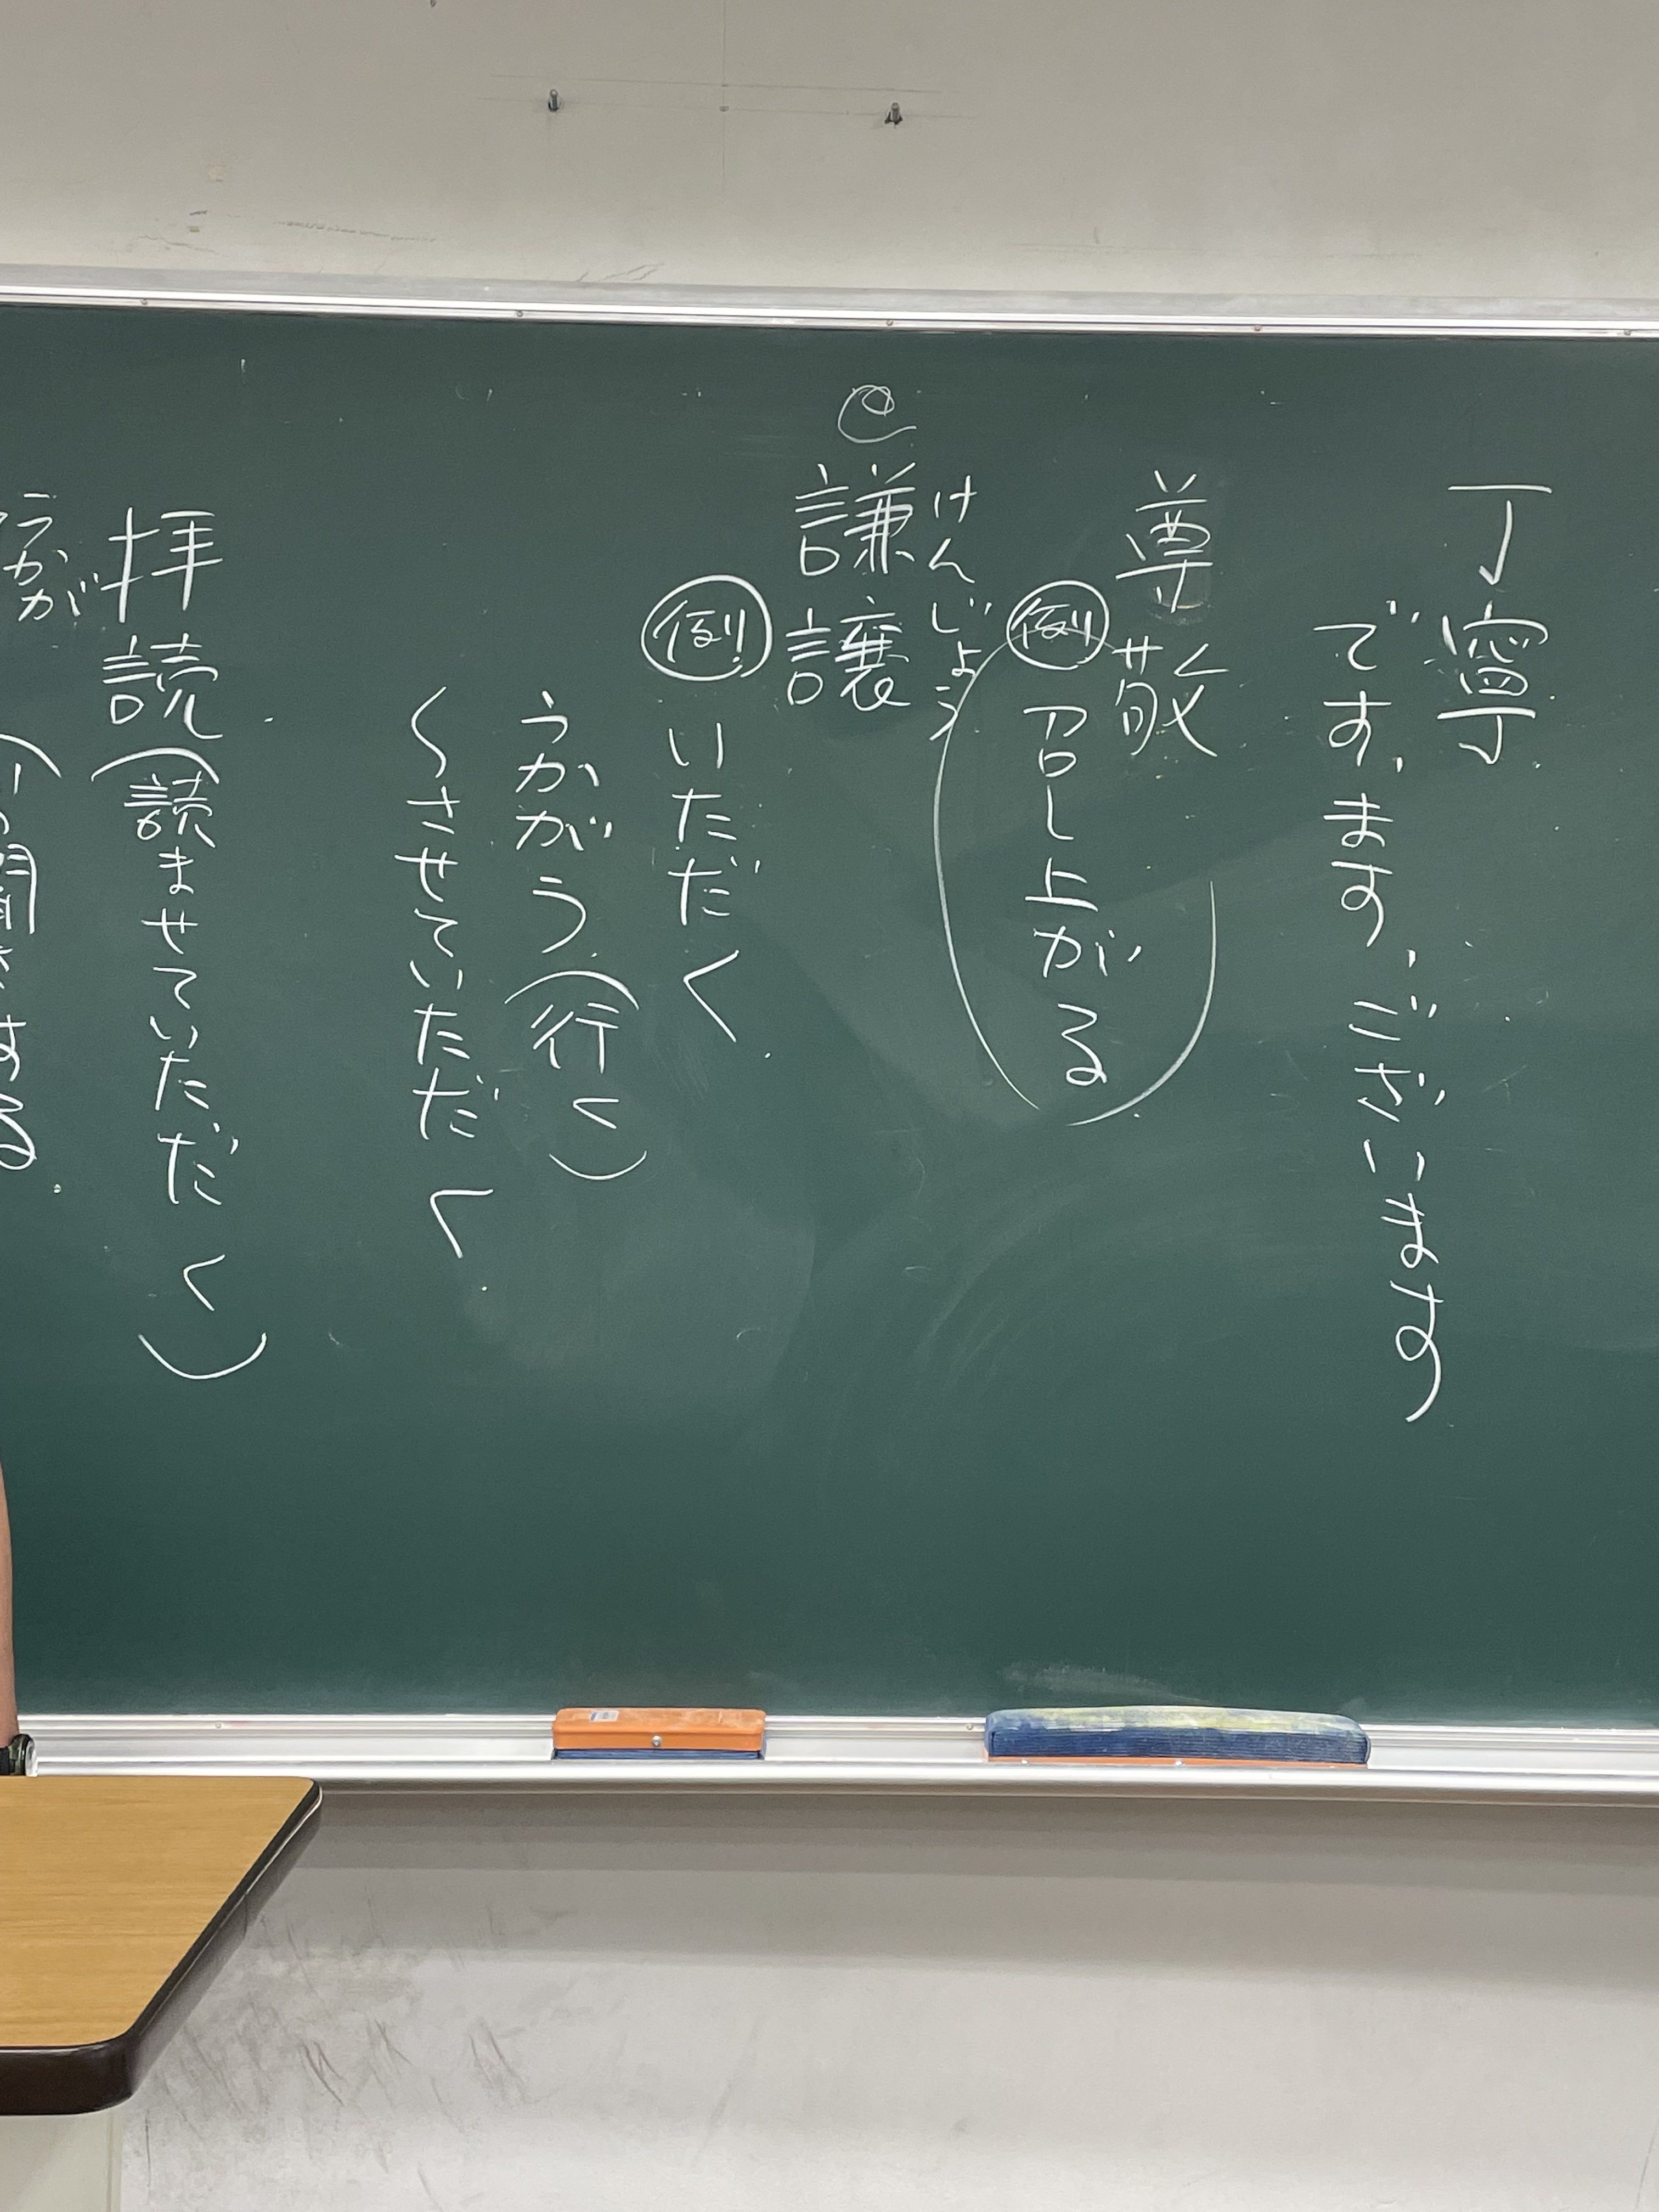 丁寧
です、ます、ございます
尊敬
例 召し上がる
けんじょう
謙譲
例 いただく
うかがう(行く)
〜させていただく
拝読(読ませていただく)
うかが